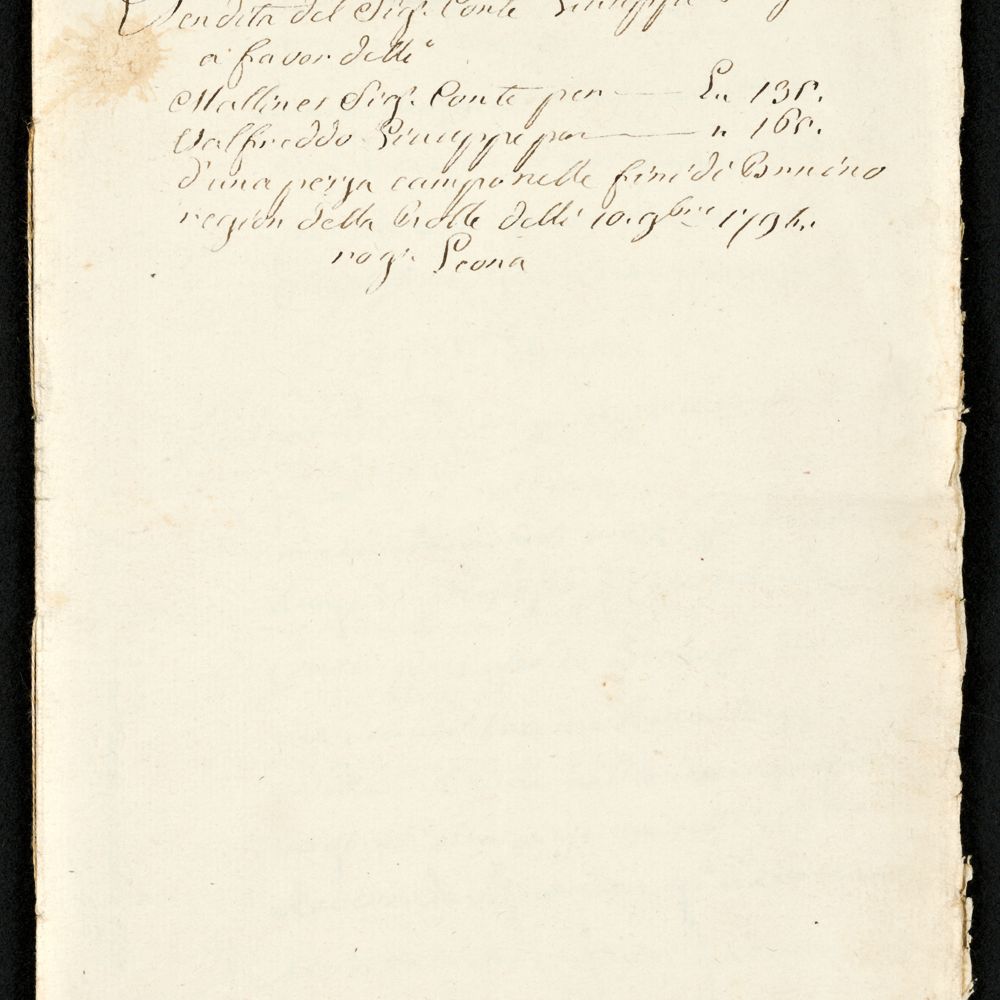 Vendita del Sig.r Conte Giuseppe
a favor delli
Mallines Sig.r Conte per — Ln 135.
Valfreddo Giuseppe per — n 165.
d'una pezza campo nelle fini di Bruino
region della delli 10. 9bre 1794.
rog.o Leona